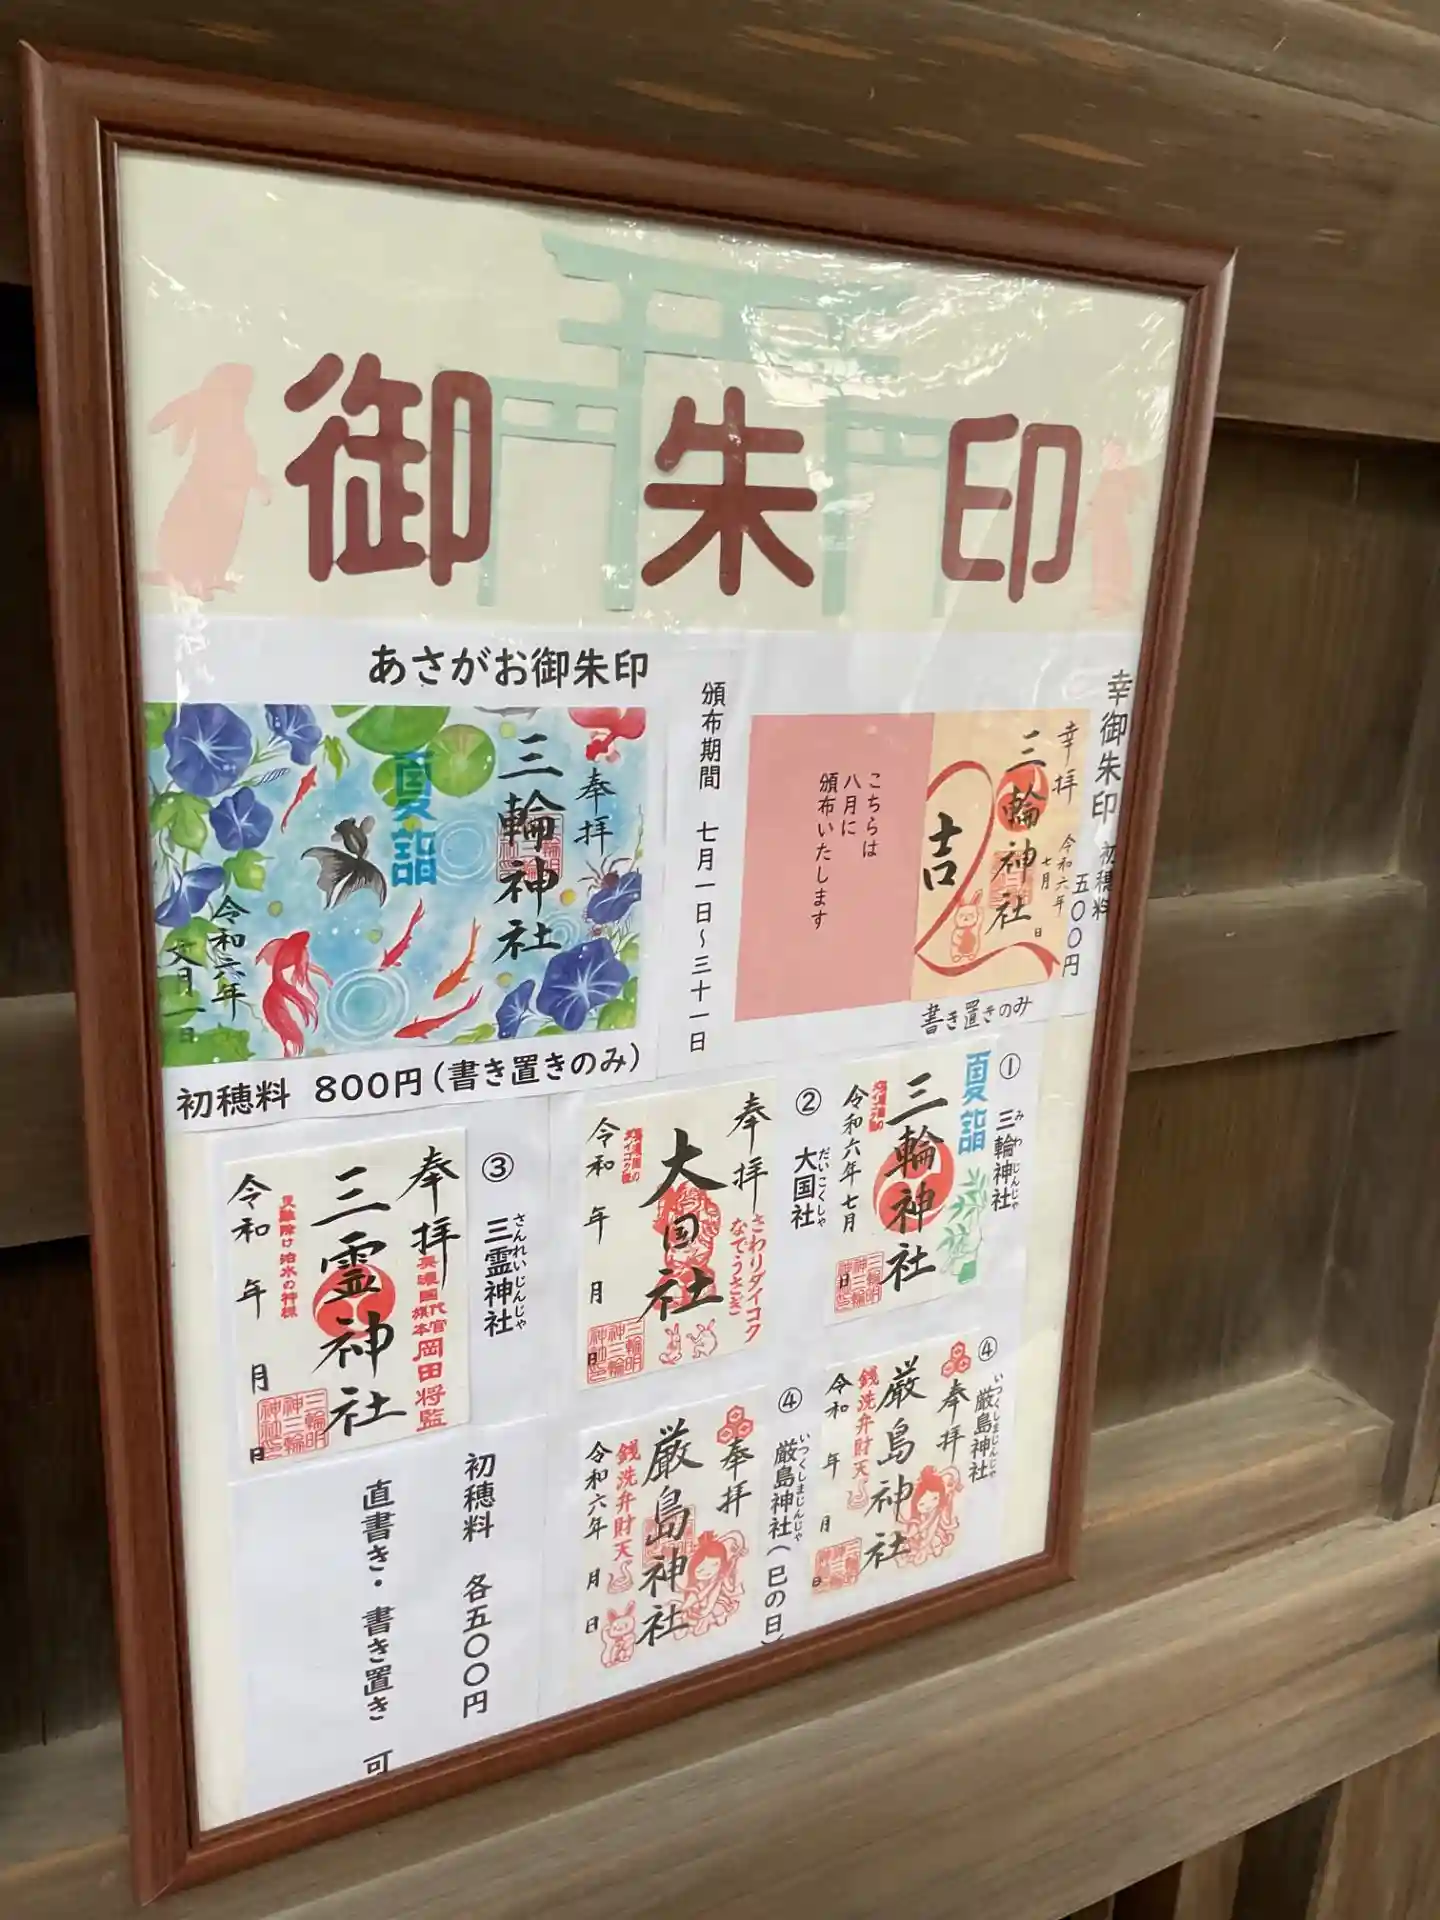 御朱印
あさがお御朱印
奉拝
三輪神社
夏詣
令和六年
文月一日
初穂料 800円(書き置きのみ)
頒布期間 七月一日〜三十一日
幸御朱印 初穂料
五〇〇円
幸拝
三輪神社
令和六年
七月
日
吉
こちらは
八月に
頒布いたします
書き置きのみ
①
三輪神社
みわじんじゃ
夏詣
三輪神社
令和六年七月
日
②
大国社
だいこくしゃ
奉拝
さわりダイコク
なでうさぎ
大国社
令和 年 月
日
③
三霊神社
さんれいじんじゃ
奉拝
美濃国代官
旗本 岡田将監
三霊神社
災難除け治水の神様
令和 年 月
日
④
厳島神社
いつくしまじんじゃ
奉拝
厳島神社
銭洗弁財天
令和 年 月
日
④
厳島神社(巳の日)
いつくしまじんじゃ
奉拝
厳島神社
銭洗弁財天
令和六年 月 日
初穂料 各五〇〇円
直書き・書き置き 可